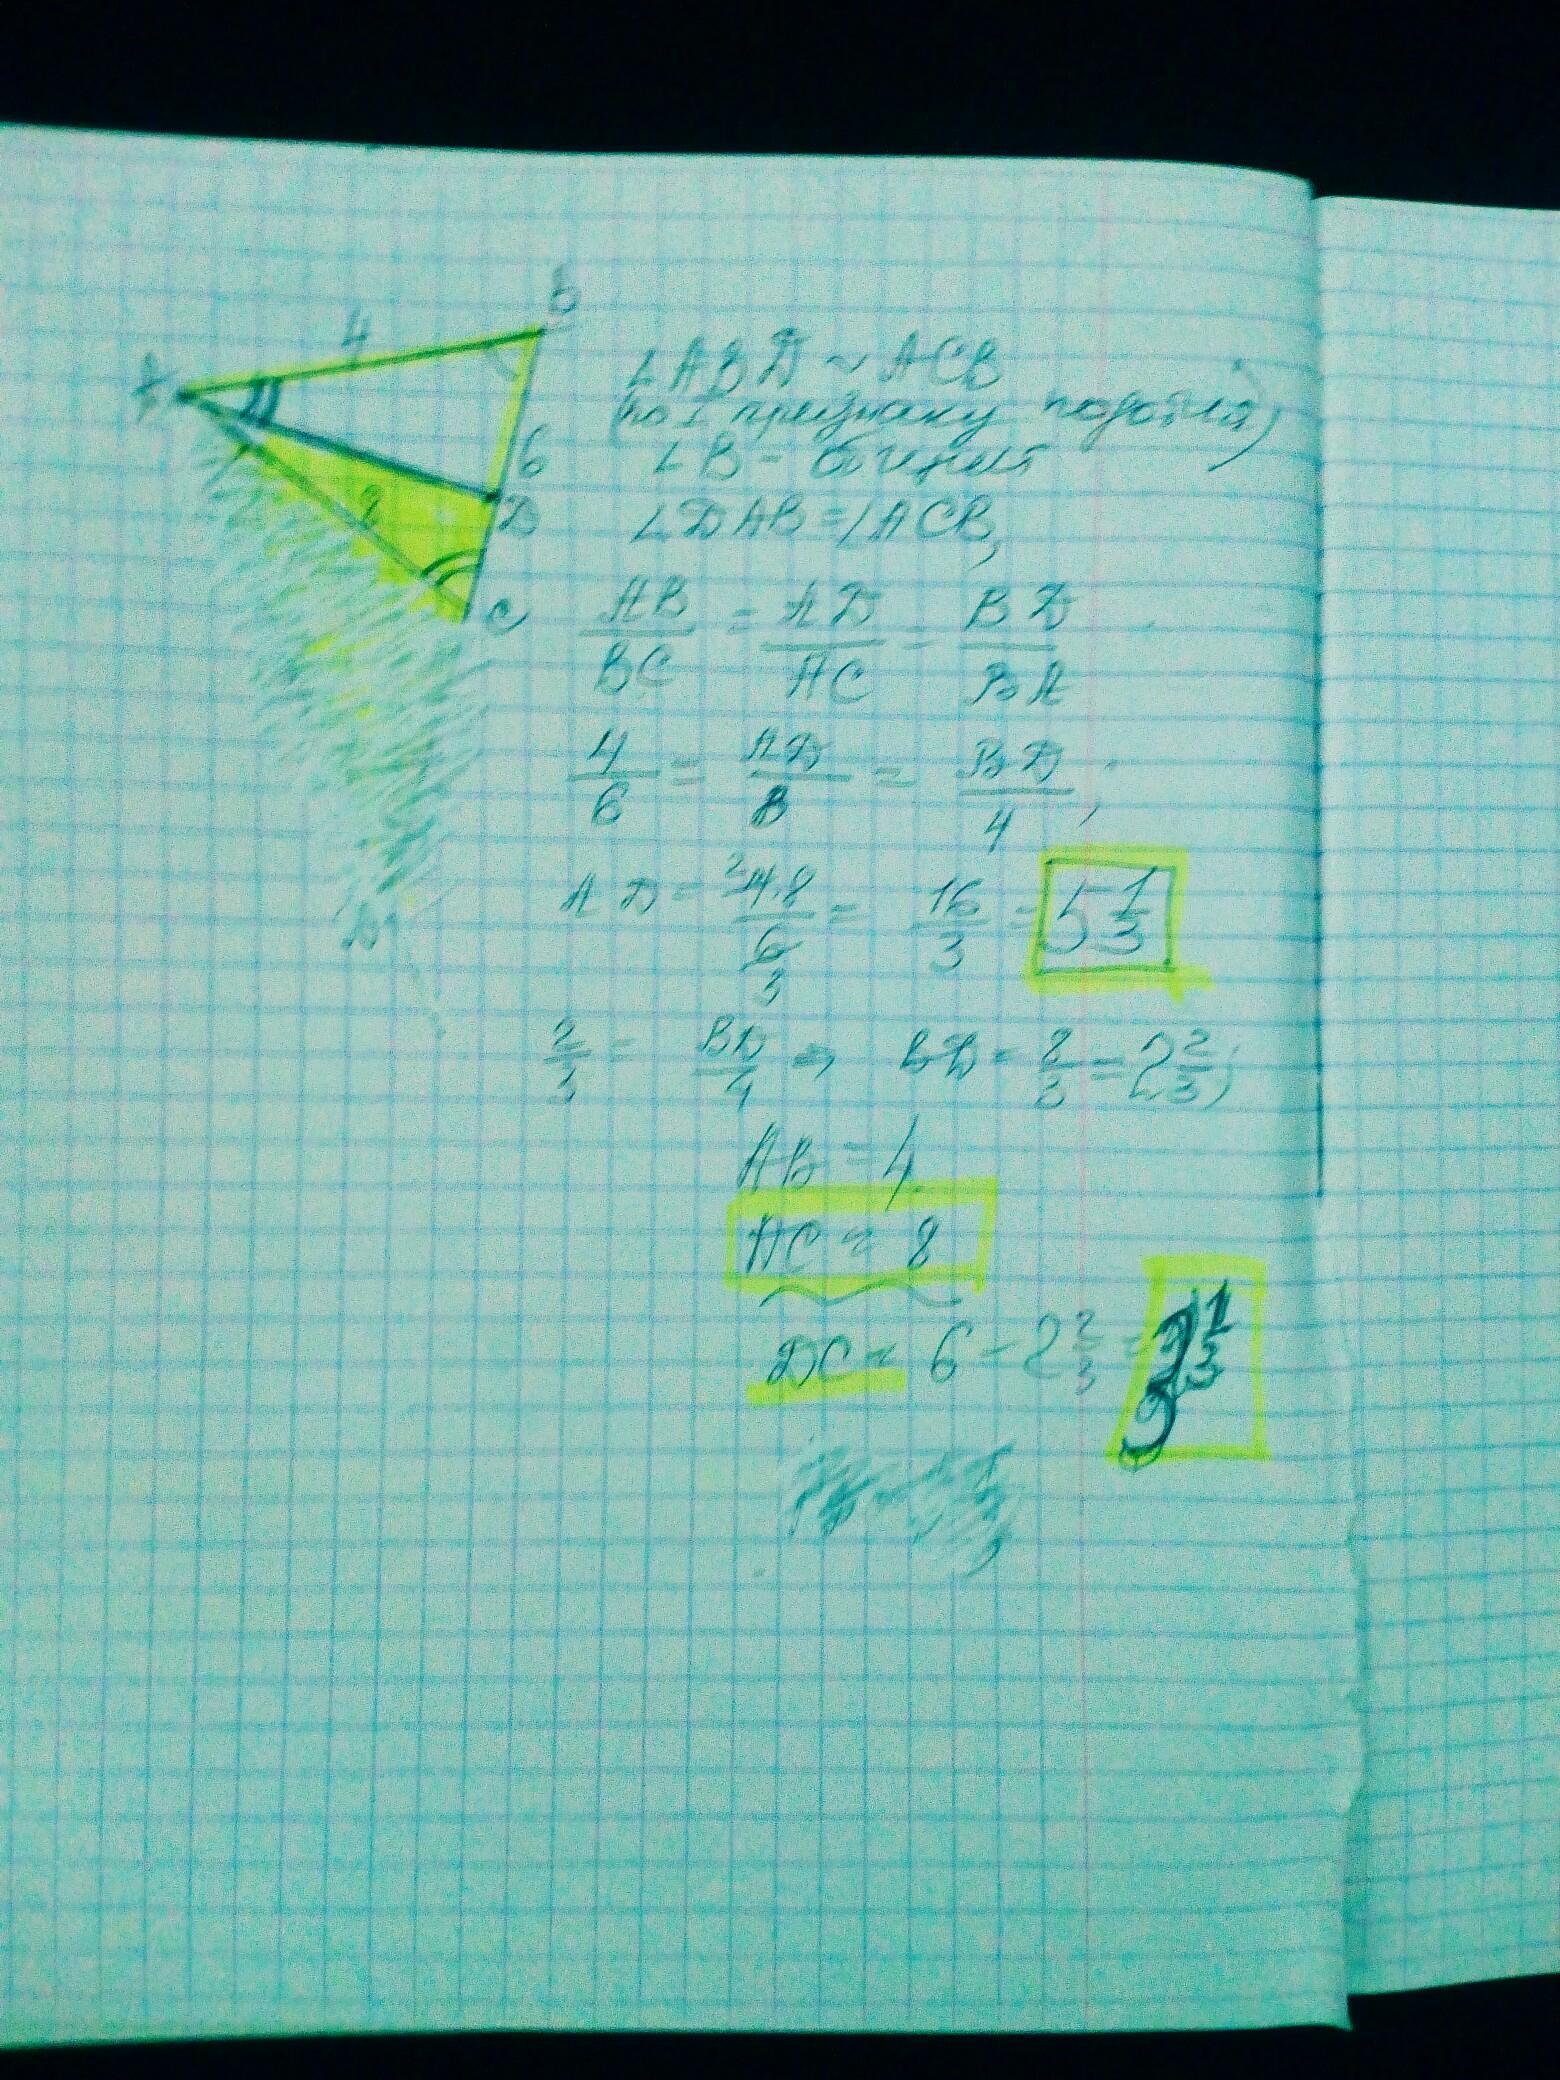 A
4
B
6
8
D
C
∠ABD ~ ACB
(по I признаку подобия)
∠B - общий
∠DAB = ∠ACB,
AB/BC = AD/AC = BD/BA
4/6 = AD/8 = BD/4;
AD = 4·8/6 = 16/3 = 5 1/3
2 3
2/3 = BD/4 ⇒ BD = 8/3 = 2 2/3;
AB = 4
AC = 8
DC = 6 - 2 2/3 = 3 1/3
3